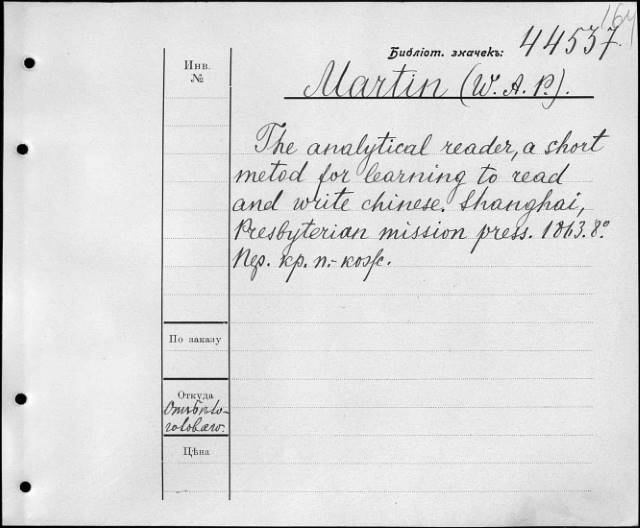 164
Библiот. значекъ: 44537.
Инв.
№
Martin (W. A. P.).
The analytical reader, a short
metod for learning to read
and write chinese. Shanghai,
Presbyterian mission press. 1863. 8º.
Пер. кр. п.-кож.
По заказу
Откуда
Цѣна